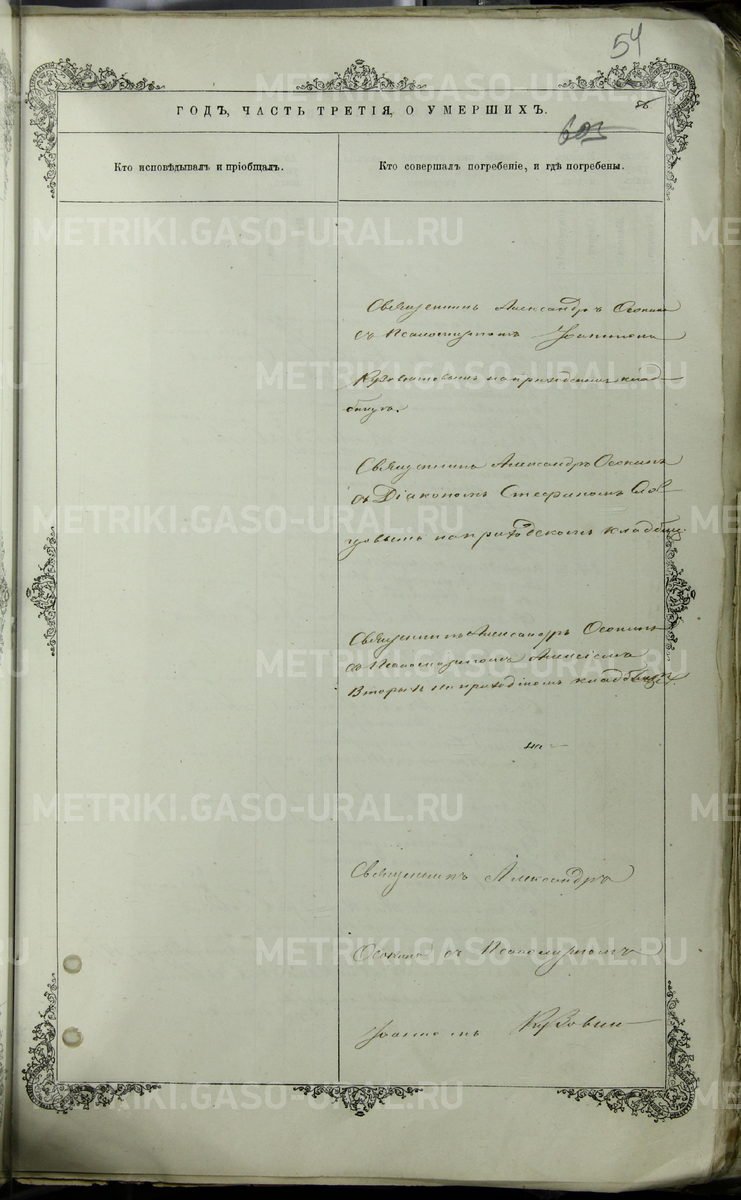 54
ГОДЪ, ЧАСТЬ ТРЕТІЯ, О УМЕРШИХЪ.
Кто исповѣдывалъ и пріобщалъ.
Кто совершалъ погребеніе, и гдѣ погребены.
Священникъ Александръ Осокинъ
съ Псаломщикомъ Іоанномъ
на приходскомъ клад-
бищѣ.
Священникъ Александръ Осокинъ
съ Діакономъ Стефаномъ
на приходскомъ кладбищ.
Священникъ Александръ Осокинъ
съ Псаломщикомъ Алексіемъ
на приходскомъ кладбищѣ.
Священникъ Александръ
Осокинъ съ Псаломщикомъ
Іоанномъ
METRIKI.GASO-URAL.RU